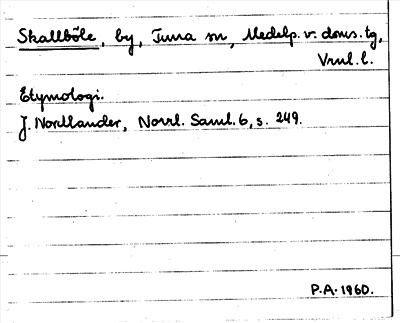 Skallböle, by, Tuna sn, Medelp. v. doms. tg,
Vnl. l.
Etymologi.
J. Nordlander, Norrl. Saml. 6, s. 249.
P.A. 1960.